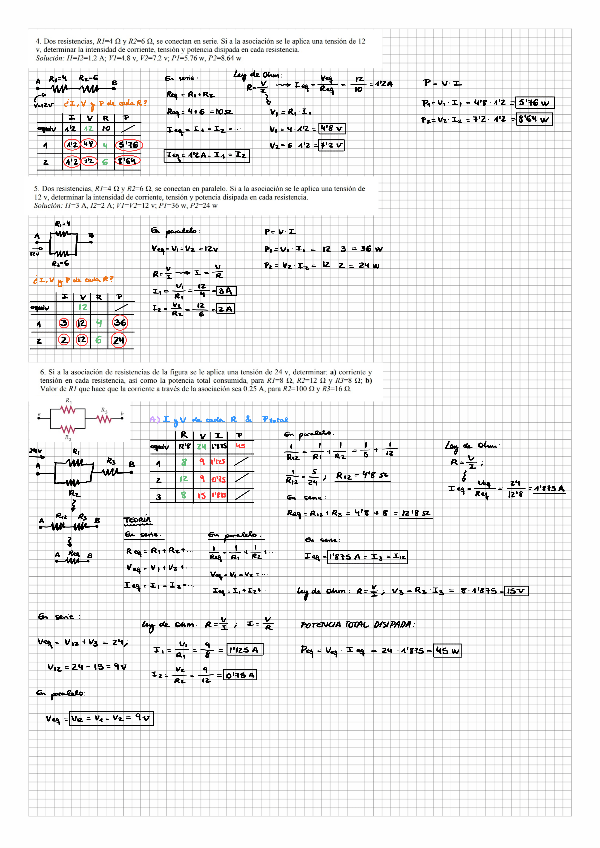 4. Dos resistencias, R1=4 Ω y R2=6 Ω, se conectan en serie. Si a la asociación se le aplica una tensión de 12
v, determinar la intensidad de corriente, tensión y potencia disipada en cada resistencia.
Solución: I1=I2=1.2 A; V1=4.8 v, V2=7.2 v; P1=5.76 w, P2=8.64 w
R1=4 R2=6
A B
V=12V
¿I, V y P de cada R?
I V R P
equiv 1'2 12 10
1 1'2 4'8 4 5'76
2 1'2 7'2 6 8'64
En serie:
Req = R1+R2
Req = 4+6 = 10Ω
Ieq = I1 = I2 = ...
Ieq = 1'2A = I1 = I2
Ley de Ohm:
R = V/I → Ieq = Veq/Req = 12/10 = 1'2A
V1 = R1 · I1
V1 = 4 · 1'2 = 4'8 V
V2 = 6 · 1'2 = 7'2 V
P = V · I
P1 = V1 · I1 = 4'8 · 1'2 = 5'76 W
P2 = V2 · I2 = 7'2 · 1'2 = 8'64 W
5. Dos resistencias, R1=4 Ω y R2=6 Ω, se conectan en paralelo. Si a la asociación se le aplica una tensión de
12 v, determinar la intensidad de corriente, tensión y potencia disipada en cada resistencia.
Solución: I1=3 A, I2=2 A; V1=V2=12 v; P1=36 w, P2=24 w
R1=4
A B
12V
R2=6
¿I, V y P de cada R?
I V R P
equiv 12
1 3 12 4 36
2 2 12 6 24
En paralelo:
Veq = V1 = V2 = 12V
R = V/I → I = V/R
I1 = V1/R1 = 12/4 = 3A
I2 = V2/R2 = 12/6 = 2A
P = V · I
P1 = V1 · I1 = 12 · 3 = 36 W
P2 = V2 · I2 = 12 · 2 = 24 W
6. Si a la asociación de resistencias de la figura se le aplica una tensión de 24 v, determinar: a) corriente y
tensión en cada resistencia, así como la potencia total consumida, para R1=8 Ω, R2=12 Ω y R3=8 Ω; b)
Valor de R1 que hace que la corriente a través de la asociación sea 0.25 A, para R2=100 Ω y R3=16 Ω.
R1
R3
R2
24V
R1
R3
A B
R2
R12 R3
A B
A Req B
A) I y V de cada R & Ptotal
R V I P
equiv 12'8 24 1'875 45
1 8 9 1'125
2 12 9 0'75
3 8 15 1'875
En paralelo:
1/R12 = 1/R1 + 1/R2 = 1/8 + 1/12
1/R12 = 5/24 ; R12 = 4'8 Ω
En serie:
Req = R12 + R3 = 4'8 + 8 = 12'8 Ω
Ley de Ohm:
R = V/I ;
Ieq = Veq/Req = 24/12'8 = 1'875 A
TEORÍA
En serie:
Req = R1+R2+...
Veq = V1+V2+...
Ieq = I1 = I2 = ...
En paralelo:
1/Req = 1/R1 + 1/R2 + ...
Veq = V1 = V2 = ...
Ieq = I1+I2+
En serie:
Ieq = 1'875 A = I3 = I12
Ley de Ohm: R = V/I ; V3 = R3 · I3 = 8 · 1'875 = 15V
En serie:
Veq = V12 + V3 = 24;
V12 = 24 - 15 = 9V
En paralelo:
Veq = V12 = V1 = V2 = 9V
Ley de Ohm: R = V/I ; I = V/R
I1 = V1/R1 = 9/8 = 1'125 A
I2 = V2/R2 = 9/12 = 0'75 A
POTENCIA TOTAL DISIPADA:
Peq = Veq · Ieq = 24 · 1'875 = 45 W